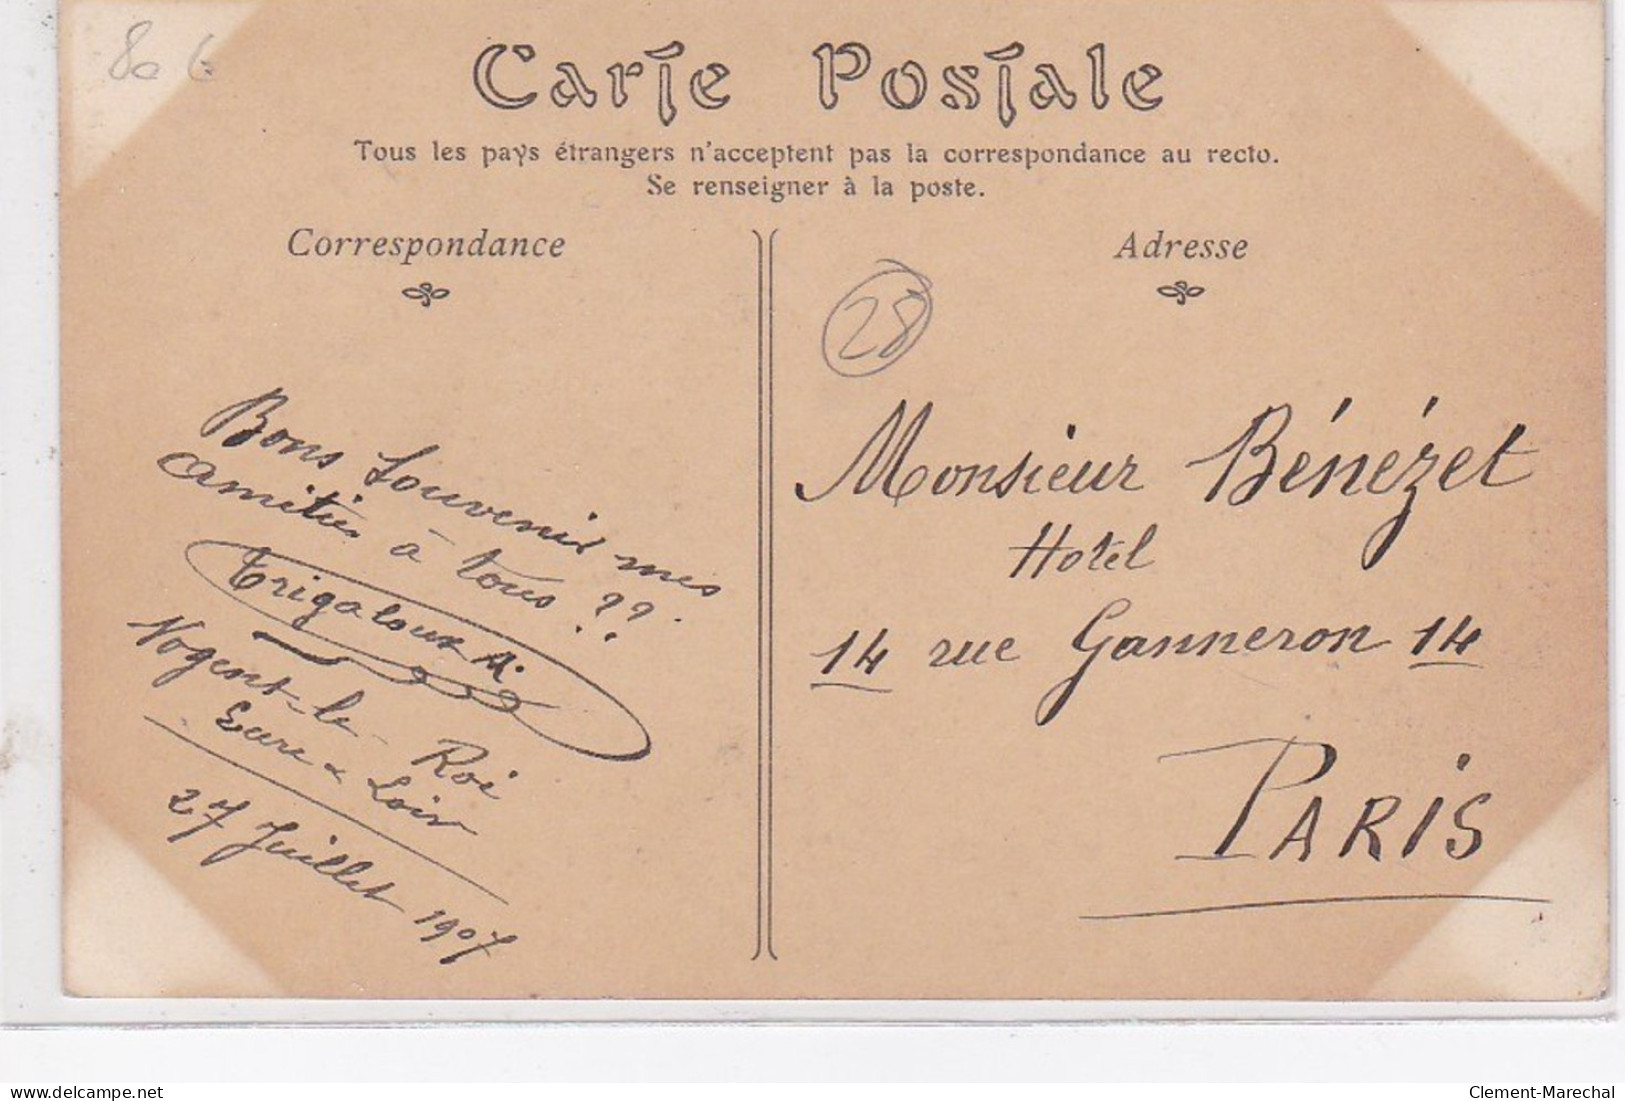 80 €
Carte Postale
Tous les pays étrangers n'acceptent pas la correspondance au recto.
Se renseigner à la poste.
Correspondance
Bons Souvenir mes
amitiés à tous ??
Trigaloux A.
Nogent-le-Roi
Eure & Loir
27 Juillet 1907
Adresse
28
Monsieur Bénézet
Hotel
14 rue Ganneron 14
PARIS
delcampe.net
Clement-Marechal